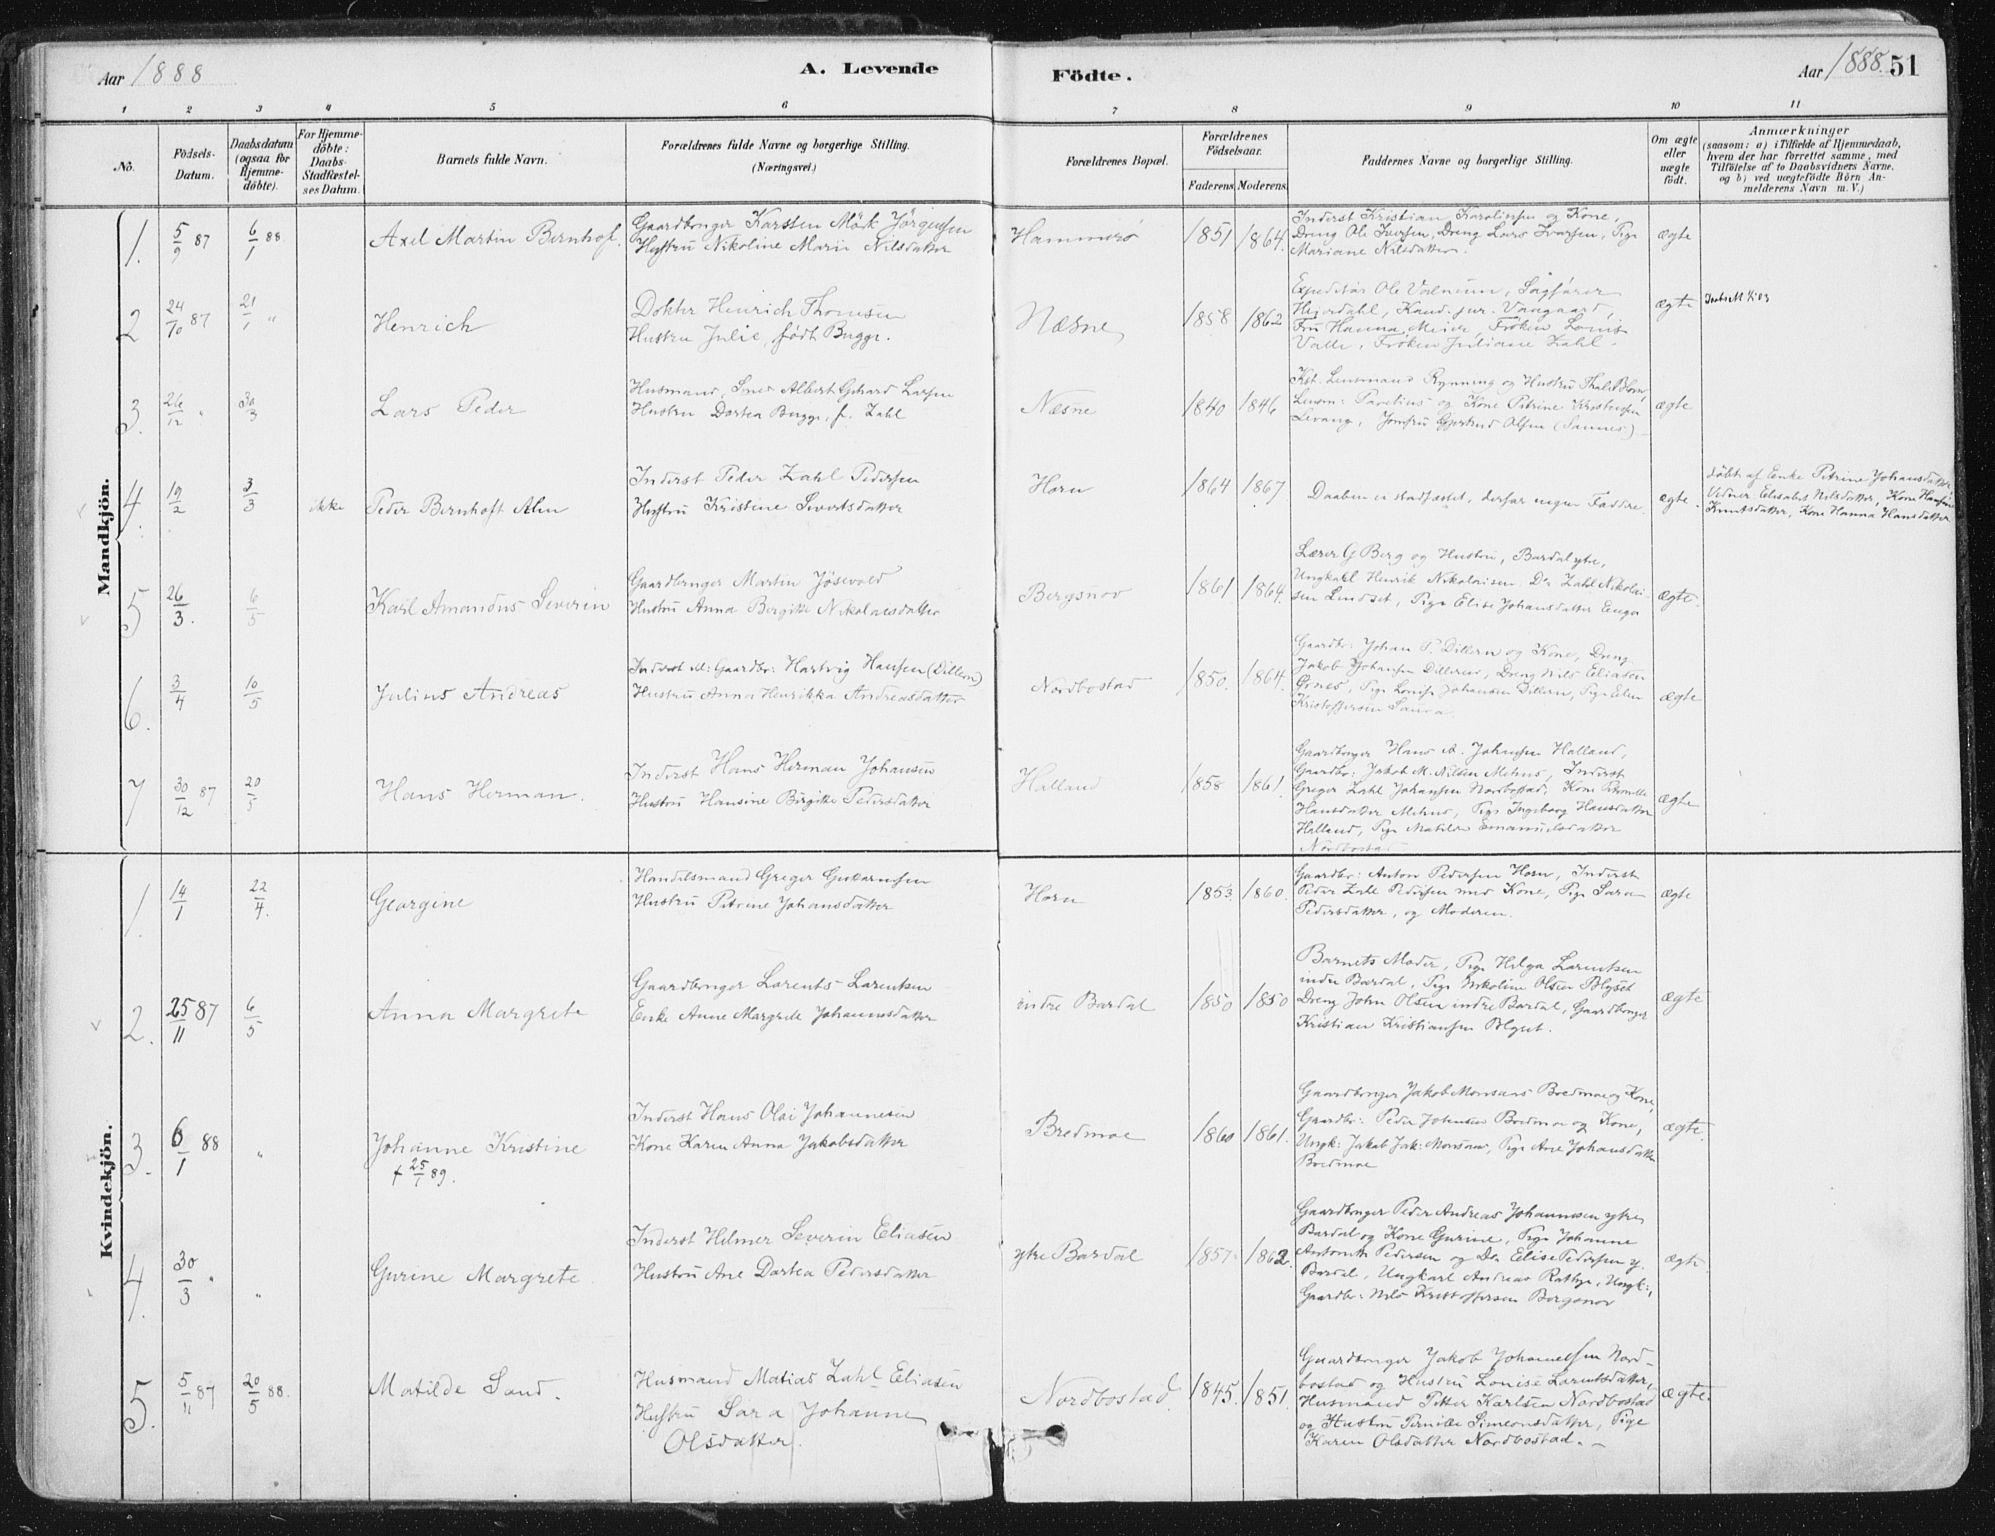 Aar 1888
A. Levende
Födte.
Aar 1888. 51
1 2 3 4 5 6 7 8 9 10 11
No.
Födsels-
Datum.
Daabsdatum
(ogsaa for
Hjemme-
döbte).
For Hjemme-
döbte:
Daabs-
Stadfæstel-
ses Datum.
Barnets fulde Navn.
Forældrenes fulde Navne og borgerlige Stilling.
(Næringsvei.)
Forældrenes Bopæl.
Forældrenes
Födselsaar.
Faderens. Moderens.
Faddernes Navne og borgerlige Stilling.
Om ægte
eller
uægte
födt.
Anmærkninger
(saasom: a) i Tilfælde af Hjemmedaab,
hvem der har forrettet samme, med
Tilföielse af to Daabsvidners Navne,
og b) ved uægtefödte Börn An-
melderens Navn m. V.)
Mandkjön.
1. 5/9 87 6/1 88 Axel Martin Bernhof.
Gaardbruger Karsten Mörk Jörgensen
Hustru Nikoline Marie Nilsdatter
Hammerö 1851 1864.
Inderst Kristian Karolinsen og Kone,
Dreng Ole Iversen, Dreng Lars Ivarsen, Pige
Mariane Nilsdatter.
ægte
2 24/10 87 21/1 " Henrich
Dokter Heinrich Thomsen
Hustru Julie, født Bugge.
Næsne 1858 1862
Expeditör Ole Valneum, Sagförer
Hejerdahl, Kand. jur. Vangaard,
Fru Hanna Meier, Fröken Lovise
Valle, Fröken Juliane Zahl.
ægte
3. 26/12 " 30/3 Lars Peder
Husmand, Smed Albert Gerhard Larsen
Hustru Dortea Bugge, f. Zahl
Næsne 1840 1846
Kst. Lensmand Rynning og Hustru Thale Blom,
Lensm: Pavelius og Kone Petrine Kristensen
Levang, Jomfru Gjertrud Olsen (Sannes)
ægte
4. 19/2 3/3 ikke Peder Bernhoft Alm
Inderst Peder Zahl Pedersen
Hustru Kristine Sivertsdatter
Horn 1864 1867.
Daaben ei stadfæstet, derfor ingen Faddere.
ægte
döbt af Enke Petrine Johansdatter
Vidner Elisabet Nilsdatter, Kone Hansine
Knutsdatter, Kone Hanna Hansdatter
5 26/3. 6/5 Karl Amandus Severin
Gaardbruger Martin Jösevold
Hustru Anna Bergitte Nikolaisdatter
Bergsnov 1861 1864.
Lærer G Berg og Hustru, Bardal ytre,
Ungkarl Henrik Nikolaisen. Do Zahl Nikolai-
sen Lindset, Pige Elise Johansdatter Enga
ægte.
6. 3/4 10/5 Julius Andreas
Inderst M: Gaardbr: Hartvig Hansen (Dillern)
Hustru Anna Henrikka Andreasdatter
Nordbostad 1850. 1864.
Gaardbr: Johan P. Dillern og Kone, Dreng
Jakob Johansen Dillern, Dreng Nils Eliasen
Grönes, Pige Lovise Johansen Dillern, Pige Elen
Kristoffersen Saura
ægte
7 30/12 87 20/5 Hans Herman.
Inderst Hans Herman Johansen
Hustru Hansine Birgitte Pedersdatter
Halland 1858 1861.
Gaardbruger Hans A. Johnsen Halland,
Gaardbr: Jakob M. Nilsen Mehus, Inderst
Greger Zahl Johansen Nordbostad, Kone Petronelle
Hansdatter Mehus, Pige Ingeborg Hansdatter
Halland, Pige Matilde Emanuelsdatter
Nordbostad
ægte
Kvindekjön.
1. 14/1 22/4. Georgine
Handelsmand Greger Guttormsen
Hustru Petrine Johansdatter
Horn 1853 1860.
Gaardbr: Anton Pedersen Horn, Inderst
Peder Zahl Pedersen med Kone, Pige Sara
Pedersdatter, og Moderen.
ægte
2. 25/11 87 6/5 Anna Margrete
Gaardbruger Lorents Larentsen
Enke Anne Margrete Johannesdatter
indre Bardal 1850 1850
Barnets Moder, Pige Helga Larentsen
indre Bardal, Pige Nikoline Olsen Blyset
Dreng John Olsen indre Bardal, Gaardbruger
Kristian Kristiansen Blyset.
ægte
3. 6/1 88 " Johanne Kristine
† 25/1 89.
Inderst Hans Olai Johannesen
Kone Karen Anna Jakobsdatter
Bredmoe 1860 1861.
Gaardbruger Jakob Monsaas Bredmoe og Kone,
Gaardbr: Peder Johnsen Bredmoe og Kone,
Ungk: Jakob Jak: Monsaas, Pige Ane Johansdatter
Bredmoe
ægte.
4. 30/3 " " Gurine Margrete
Inderst Helmer Severin Eliasen
Hustru Ane Dortea Pedersdatter
ytre Bardal 1857 1862.
Gaardbruger Peder Andreas Johannesen ytre
Bardal og Kone Gurine, Pige Johanne
Antonette Pedersen og Do Elise Pedersen y.
Bardal, Ungkarl Andreas Rathje, Ungk:,
Gaardbr: Nils Kristoffersen Bergsnov
ægte
5. 5/11 87 20/5 88. Matilde Sand.
Husmand Matias Zahl Eliasen
Hustru Sara Johanne
Olsdatter.
Nordbostad. 1845. 1851.
Gaardbruger Jakob Johannessen Nord-
bostad og Hustru Lovise Larentsdatter,
Husmand Petter Karlsen Nordbostad
og Hustru Pernille Simeonsdatter, Pige
Karen Olsdatter Nordbostad. —
ægte.